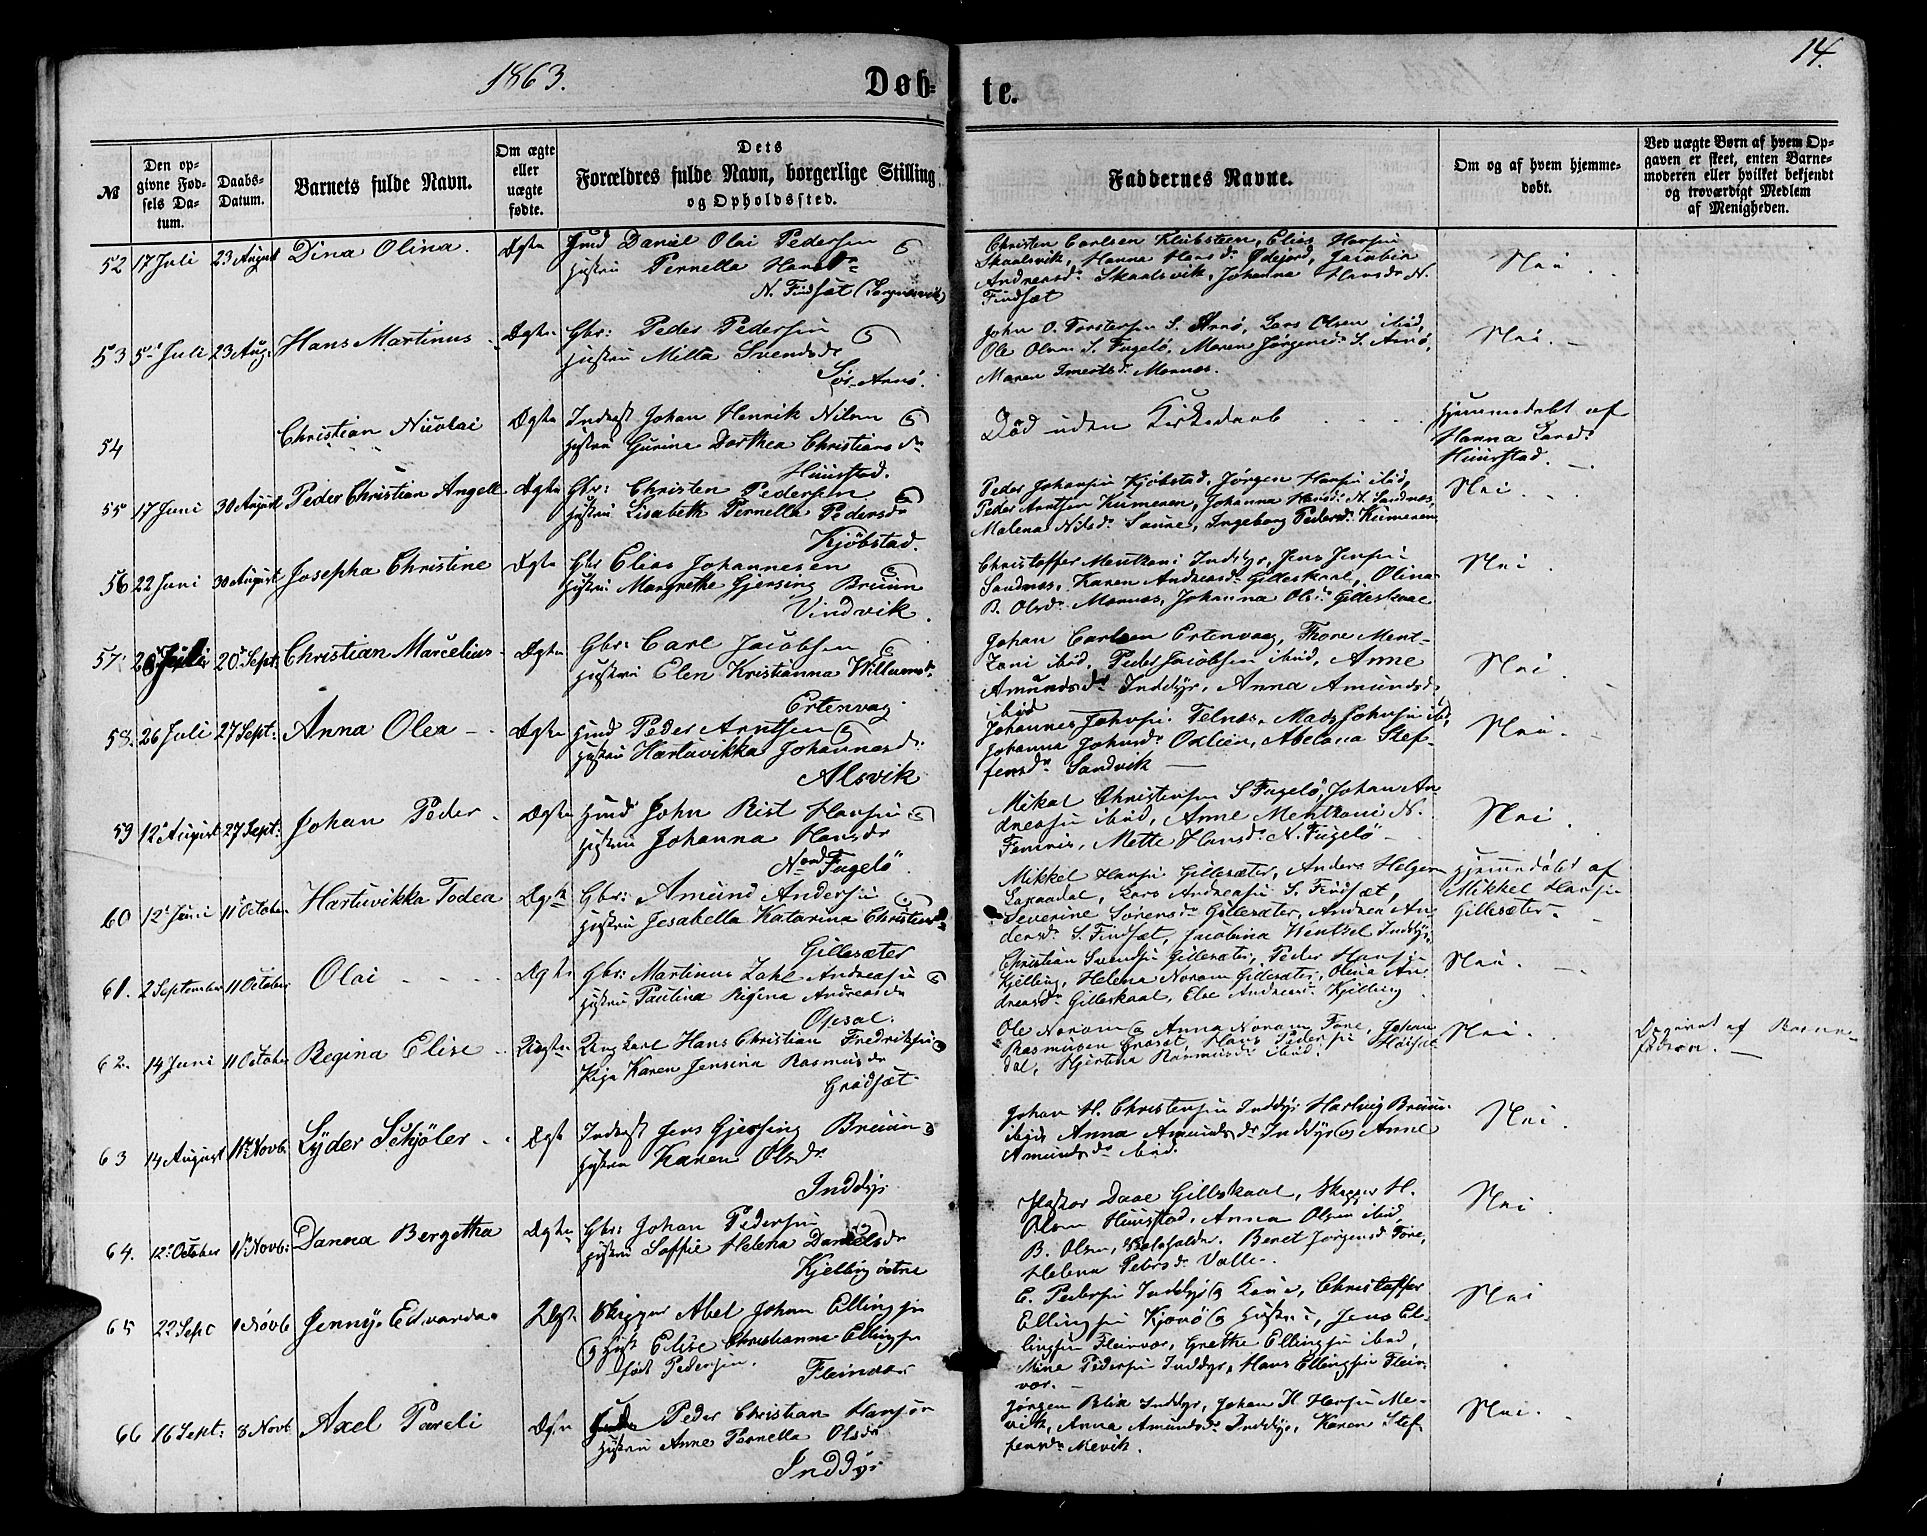 1863.
Døb-
te.
14.
№
Den op-
givne Fød-
sels Da-
tum.
Daabs-
Datum.
Barnets fulde Navn.
Om ægte
eller
uægte
fødte.
Dets
Forældres fulde Navn, borgerlige Stilling
og Opholdssted.
Faddernes Navne.
Om og af hvem hjemme-
døbt.
Ved uægte Børn af hvem Op-
gaven er skeet, enten Barne-
moderen eller hvilket bekjendt
og troværdigt Medlem
af Menigheden.
52 17 Juli 23 August Dina Olina. Ægte Huusmd Daniel Olai Pedersen
Hustru Pernella Hansdr
N. Findsæt
Christen Carlsen Klubsteen, Elias Hansen
Skaalsvik, Hanna Hansdr Ødejord, Jacobin
Andreasdr Skaalsvik, Johanna Hansdr N.
Findsæt
Nei
53 5te Juli 23 Aug: Hans Martinus Ægte Gbr: Peder Pedersen
Hustru Milta Svendsdr
Sør-Arnø.
John O. Torstensen S. Arnø, Lars Olsen ibid,
Ole Olsen S. Fugelø, Maren Jørgensdr S. Arnø,
Maren Mørnæs.
Nei.
54 Christian Nicolai Ægte Inderst Johan Henrik Nilsen
Hustru Gurine Dorthea Christiansdr
Huustad.
Død uden Kirkedaab
Hjemmedøbt af
Hanna Larsdr
Huustad.
55 17 Juni 30 August Peder Christian Angell Ægte Gbr: Christen Pedersen
Hustru Lisabeth Pernella Pedersdr
Kjøbstad.
Peder Johansen Kjøbstad, Jørgen Hansen ibid,
Peder Arntsen Kumeren, Johanna Hansdr N. Sandnæs,
Malena Nilsdr Saura, Ingeborg Pedersdr Kumeren
Nei.
56 22 Juni 30 August Josepha Christine Ægte Gbr Elias Johannesen
Hustru Margrethe Gjersing Bruun
Vindvik.
Christoffer Mentzoni Inddyr, Jens Jensen
Sandnæs, Karen Andreasdr Gilleskaal, Olina
B. Olsdr Mornæs, Johanna Olsdr Gilleskaal
Nei
57. Juli 20 Sept. Christian Marcelius Ægte Gbr: Carl Jacobsen
Hustru Elen Kristianna Willumsdr
Ertenvag.
Johan Carlsen Ertenvaag, Thore Ment-
zoni ibid, Peder Jacobsen ibid, Anne
Amundsdr Inddyr, Anna Amundsdr
ibid
Nei
58. 26 Juli 27 Sept: Anna Olea Ægte Huusmd Peder Arntsen
Hustru Hartuvikka Johannesdr
Alsvik
Johannes Johnsen Telnæs, Mads Johnsen ibd,
Johanna Johnsdr Oxlien, Abelona Stef-
fensdr Sandvik
Nei.
59 12te August 27 Sept: Johan Peder Ægte Huusmd John Rist Hansen
Hustru Johanna Hansdr
Nord Fugelø
Mikal Christensen S Fugelø, Johan An-
dreasen ibid, Anne Mentzoni N.
Femris, Mette Hansdr N. Fugelø
Nei.
60 12te Juni 11te October Hartuvikka Todea Ægte Gbr: Amund Andersen
Hustru Jesabella Katarina Christensdr
Gillesæter
Mikkel Hansen Gillesæter, Anders Helgen
Laxaadal, Lars Andreasen S. Findsæt,
Severine Sørensdr Gillesæter, Andrea An-
dersdr S. Findsæt, Jacobina Wentzel Inddyr
Hjemmedøbt af
Mikkel Hansen
Gillesæter.
61. 2 September 11 October Olai Ægte Gbr: Martinus Zahl Andreasen
Hustru Paulina Regina Andreasdr
Opsal.
Christian Svendsen Gillesæter, Peder Hansen
Kjelling, Helena Norum Gillesæter, Olina An-
dreasdr Gilleskaal, Else Andreasdr Kjelling
Nei.
62. 14 Juni 11 October Regina Elise Uægte Ung Karl Hans Christian Fredriksen
Pige Karen Jensina Rasmusdr
Gradsæt.
Ole Norum og Anna Norum Fore, Johan
Rasmusen Gradsæt, Hans Pedersen
dal, Hjertina Rasmusdr ibid.
Nei.
Opgivet af Barne-
faderen.
63 14 August 1ste Novb. Lyder Schjøler Ægte Inderst Jens Gjersing Bruun
Hustru Karen Olsdr
Inddyr
Johan H. Christensen Inddyr Hartvig Bruun
ibid Anna Amundsdr Inddyr og Anne
Amundsdr ibid.
Nei.
64. 12te October 1ste Novb: Danna Bergetha Ægte Gbr: Johan Pedersen
Hustru Soffie Helena Danielsdr
Kjelling østre
Pastor Daae Gilleskaal, Skipper H.
Olsen Huustad, Anna Olsen ibid,
B. Olsen, Beret Jørgensdr Fore,
Helena Pedersdr Valle.
Nei.
65 22 Sept 1 Novb Jenny Edvarda Ægte Skipper Abel Johan Ellingsen
og Hust Elise Christianna Ellingsen
født Pedersen. Fleinvær
E. Pedersen Inddyr og Kone, Christoffer
Ellingsen Kjærø og Hustru, Jens El-
lingsen Fleinvær, Grethe Ellingsen ibid,
Mine Pedersen Inddyr, Hans Ellingsen Flein-
vær.
Nei
66 16 Sept: 8 Novb Axel Pareli Ægte Peder Christian Hansen
Hustru Anne Pernella Olsdr
Inddyr
Jørgen Blix Inddyr, Johan H. Hansen Me-
vik, Anna Amundsdr Inddyr, Karen Stef-
fensdr Mevik.
Nei.